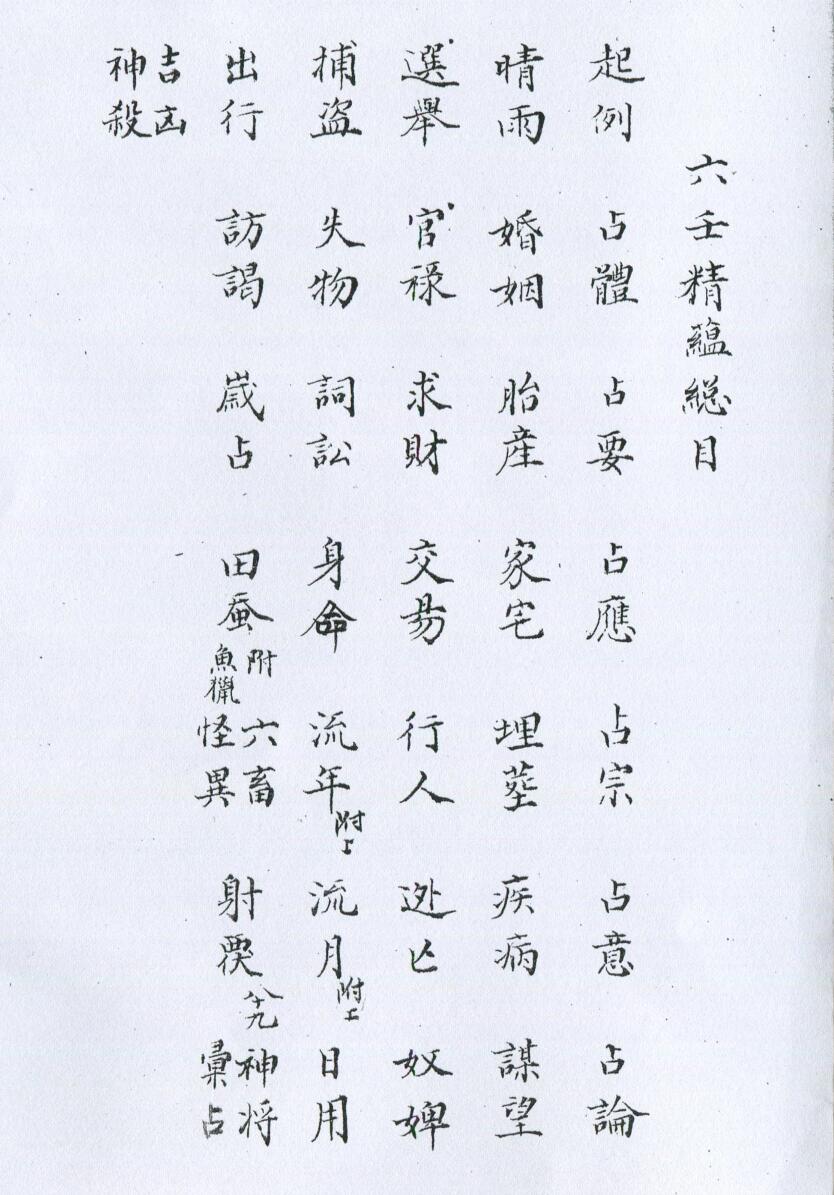 六壬精蘊緫目
起例 占體 占要 占應 占宗 占意 占論
晴雨 婚姻 胎産 家宅 埋塟 疾病 謀望
選舉 官祿 求財 交易 行人 逃亡 奴婢
捕盗 失物 詞訟 身命 流年附上 流月附上 日用
出行 訪謁 歲占 田蚕附魚獵 六畜怪異 射覆 神将彙占
吉凶神殺